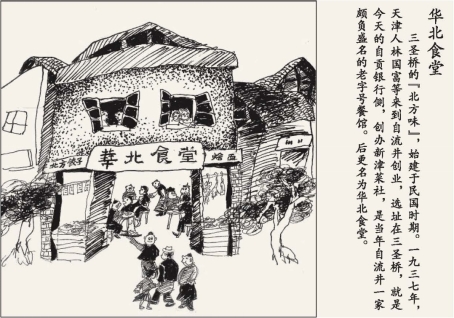 华北食堂
三圣桥的『北方味』，始建于民国时期。一九三七年，
天津人林国富等来到自流井创业，选址在三圣桥，就是
今天的自贡银行侧，创办新津菜社，是当年自流井一家
颇负盛名的老字号餐馆。后更名为华北食堂。
北方饺子
華北食堂
烩面